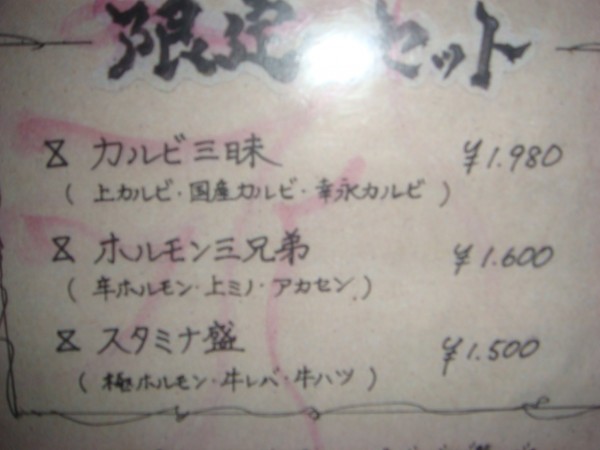 限定 セット
カルビ三昧 ¥1.980
(上カルビ・国産カルビ・幸永カルビ)
ホルモン三兄弟 ¥1.600
(辛ホルモン・上ミノ・アカセン)
スタミナ盛 ¥1.500
(極ホルモン・牛レバ・牛ハツ)